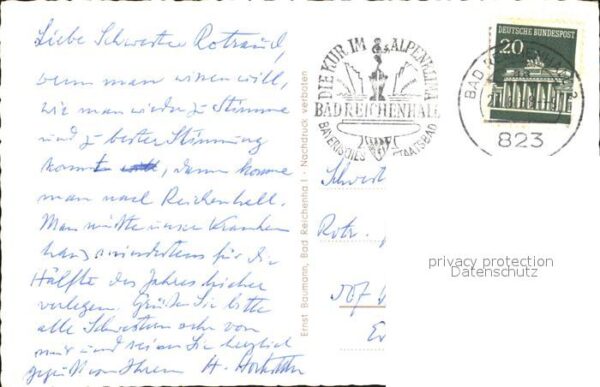 Liebe Schwester Rotraud,
wenn man wissen will,
wie man wieder zu Stimme
und zu bester Stimmung
kommt, dann komme
man nach Reichenhall.
Man müßte unser Kranken
haus mindestens für die
Hälfte des Jahres hierher
verlegen. Grüßen Sie bitte
alle Schwestern sehr von
mir und seien Sie herzlich
gegrüßt von Ihrem H.
Ernst Baumann, Bad Reichenhall · Nachdruck verboten
DIE KUR IM ALPENKLIMA
BAD REICHENHALL
BAYERISCHES STAATSBAD
DEUTSCHE BUNDESPOST
20
BAD
823
Schwest
Rotr.
privacy protection
Datenschutz
507